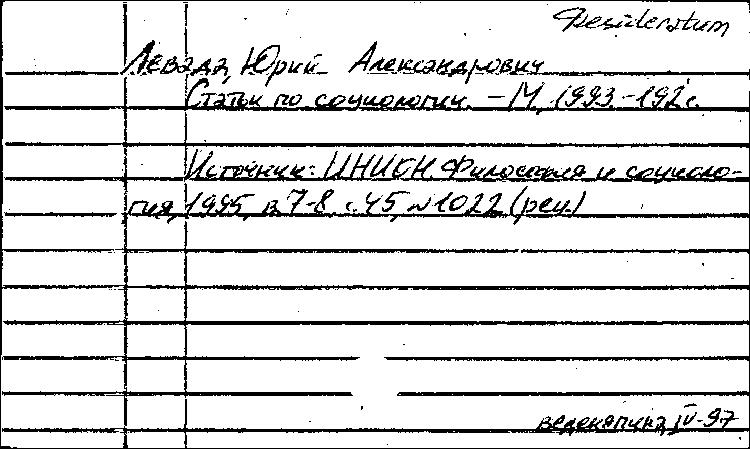 Desideratum
Левада, Юрий Александрович
Статьи по социологии. – М, 1993. – 192 с.
Источник: ИНИОН. Философия и социоло-
гия, 1995, в. 7-8. с. 45, № 1022 (рец.)
Веденяпина, IV-97